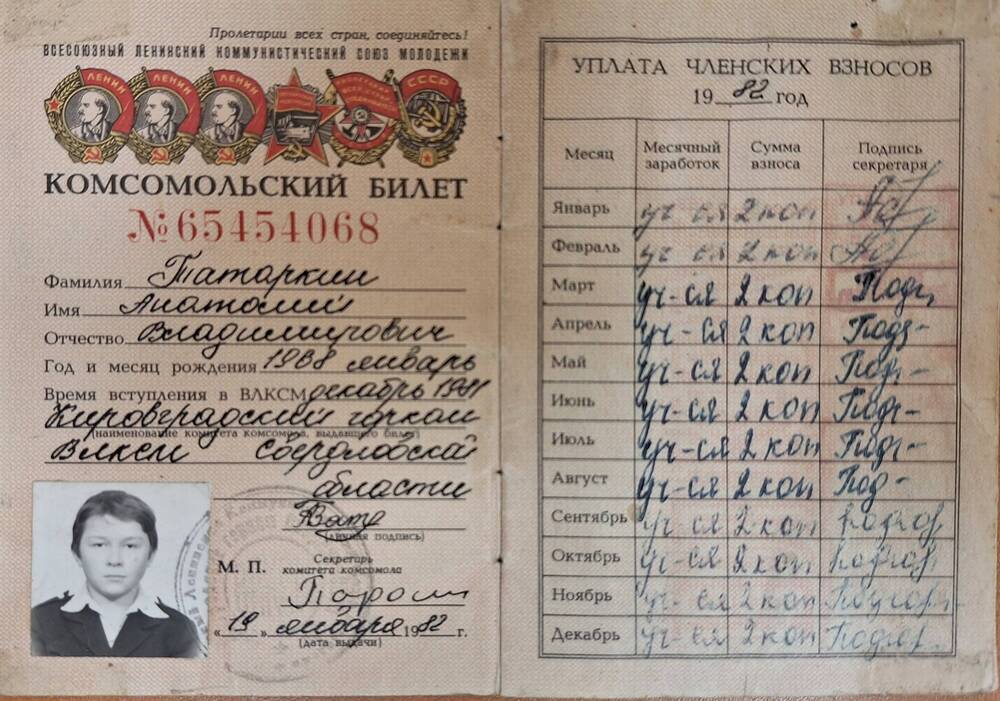 Пролетарии всех стран, соединяйтесь!
ВСЕСОЮЗНЫЙ ЛЕНИНСКИЙ КОММУНИСТИЧЕСКИЙ СОЮЗ МОЛОДЕЖИ
ЛЕНИН ЛЕНИН ЛЕНИН СССР
КОМСОМОЛЬСКИЙ БИЛЕТ
№ 65454068
Фамилия Татаркин
Имя Анатолий
Отчество Владимирович
Год и месяц рождения 1968 январь
Время вступления в ВЛКСМ декабрь 1981
Кировградский горком
(наименование комитета комсомола, выдавшего билет)
ВЛКСМ Свердловской
области
(личная подпись)
М. П. Секретарь
комитета комсомола
«19» января 1982 г.
(дата выдачи)
УПЛАТА ЧЛЕНСКИХ ВЗНОСОВ
1982 год
Месяц Месячный заработок Сумма взноса Подпись секретаря
Январь уч-ся 2 коп
Февраль уч-ся 2 коп
Март уч-ся 2 коп
Апрель уч-ся 2 коп
Май уч-ся 2 коп
Июнь уч-ся 2 коп
Июль уч-ся 2 коп
Август уч-ся 2 коп
Сентябрь уч-ся 2 коп
Октябрь уч-ся 2 коп
Ноябрь уч-ся 2 коп
Декабрь уч-ся 2 коп